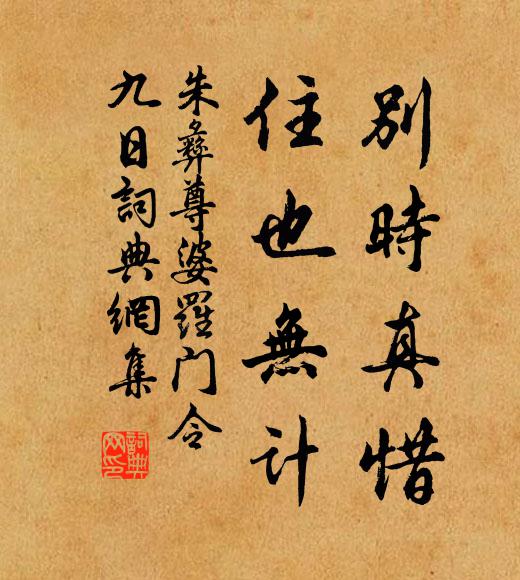 別時真惜
住也無計
朱彝尊婆羅门令
九日詞典網集
詞典
网印